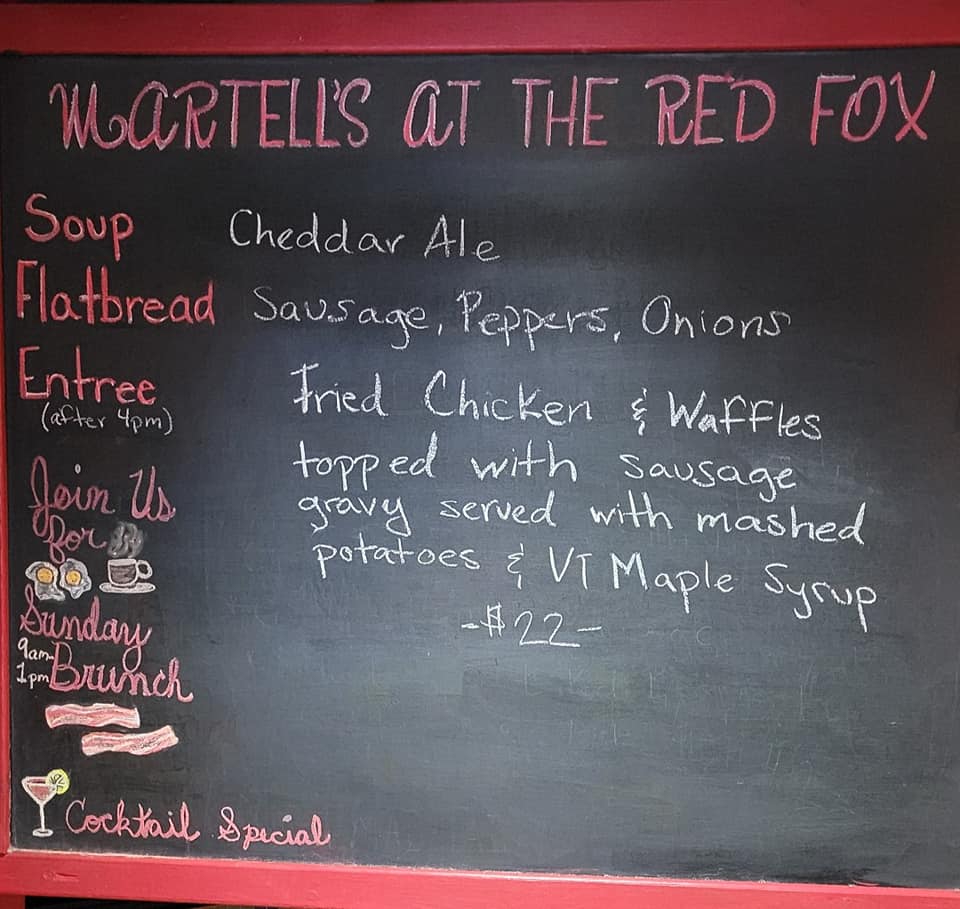 MARTELL'S AT THE RED FOX
Soup Cheddar Ale
Flatbread Sausage, Peppers, Onions
Entree Fried Chicken & Waffles
(after 4pm)
topped with sausage
gravy served with mashed
potatoes & VT Maple Syrup
-$22-
Join Us
for
Sunday
9am-
1pm Brunch
Cocktail Special